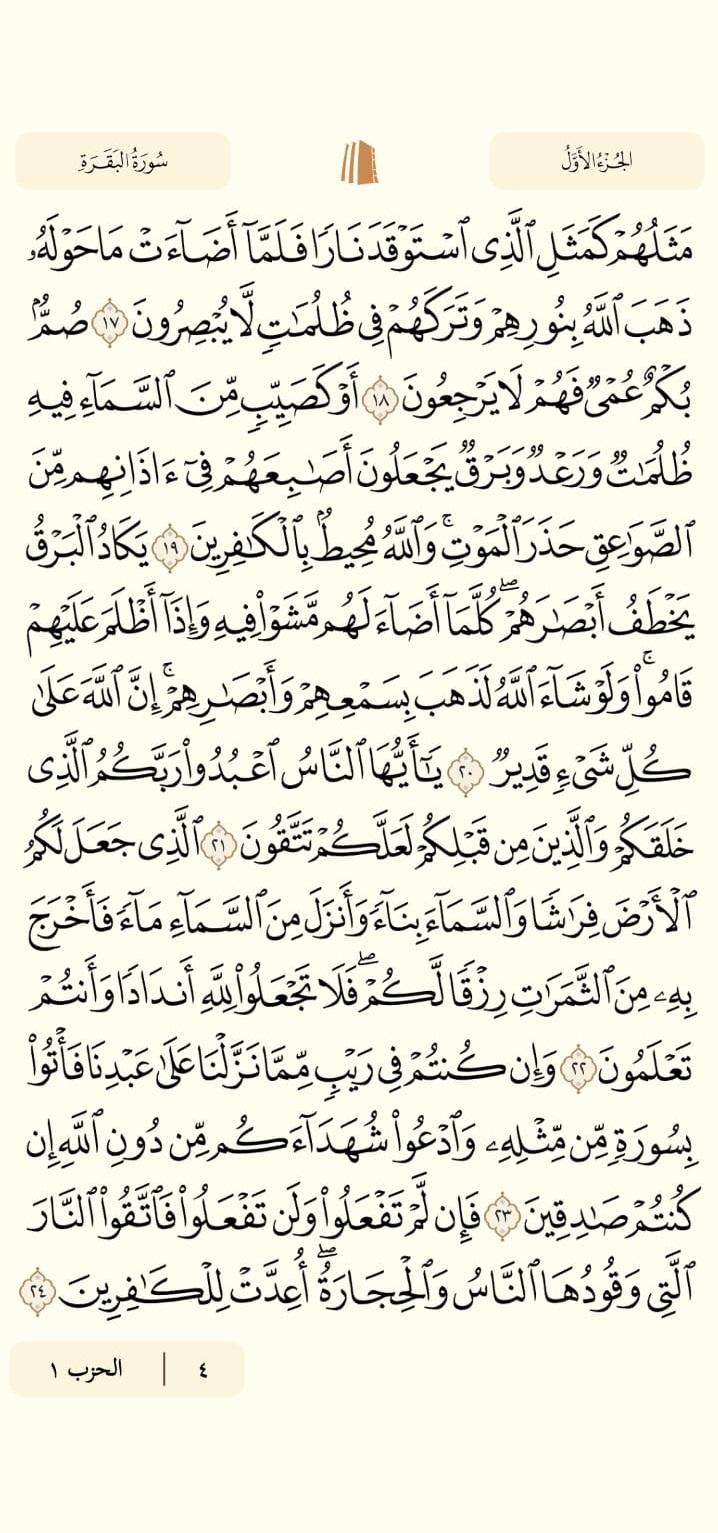 الجُزْءُ الأَوَّلُ
سُورَةُ البَقَرَةِ
مَثَلُهُمْ كَمَثَلِ ٱلَّذِى ٱسْتَوْقَدَ نَارًا فَلَمَّآ أَضَآءَتْ مَا حَوْلَهُۥ
ذَهَبَ ٱللَّهُ بِنُورِهِمْ وَتَرَكَهُمْ فِى ظُلُمَٰتٍ لَّا يُبْصِرُونَ ١٧ صُمٌّۢ
بُكْمٌ عُمْىٌ فَهُمْ لَا يَرْجِعُونَ ١٨ أَوْ كَصَيِّبٍ مِّنَ ٱلسَّمَآءِ فِيهِ
ظُلُمَٰتٌ وَرَعْدٌ وَبَرْقٌ يَجْعَلُونَ أَصَٰبِعَهُمْ فِىٓ ءَاذَانِهِم مِّنَ
ٱلصَّوَٰعِقِ حَذَرَ ٱلْمَوْتِ ۚ وَٱللَّهُ مُحِيطٌۢ بِٱلْكَٰفِرِينَ ١٩ يَكَادُ ٱلْبَرْقُ
يَخْطَفُ أَبْصَٰرَهُمْ ۖ كُلَّمَآ أَضَآءَ لَهُم مَّشَوْا۟ فِيهِ وَإِذَآ أَظْلَمَ عَلَيْهِمْ
قَامُوا۟ ۚ وَلَوْ شَآءَ ٱللَّهُ لَذَهَبَ بِسَمْعِهِمْ وَأَبْصَٰرِهِمْ ۚ إِنَّ ٱللَّهَ عَلَىٰ
كُلِّ شَىْءٍ قَدِيرٌ ٢٠ يَٰٓأَيُّهَا ٱلنَّاسُ ٱعْبُدُوا۟ رَبَّكُمُ ٱلَّذِى
خَلَقَكُمْ وَٱلَّذِينَ مِن قَبْلِكُمْ لَعَلَّكُمْ تَتَّقُونَ ٢١ ٱلَّذِى جَعَلَ لَكُمُ
ٱلْأَرْضَ فِرَٰشًا وَٱلسَّمَآءَ بِنَآءً وَأَنزَلَ مِنَ ٱلسَّمَآءِ مَآءً فَأَخْرَجَ
بِهِۦ مِنَ ٱلثَّمَرَٰتِ رِزْقًا لَّكُمْ ۖ فَلَا تَجْعَلُوا۟ لِلَّهِ أَندَادًا وَأَنتُمْ
تَعْلَمُونَ ٢٢ وَإِن كُنتُمْ فِى رَيْبٍ مِّمَّا نَزَّلْنَا عَلَىٰ عَبْدِنَا فَأْتُوا۟
بِسُورَةٍ مِّن مِّثْلِهِۦ وَٱدْعُوا۟ شُهَدَآءَكُم مِّن دُونِ ٱللَّهِ إِن
كُنتُمْ صَٰدِقِينَ ٢٣ فَإِن لَّمْ تَفْعَلُوا۟ وَلَن تَفْعَلُوا۟ فَٱتَّقُوا۟ ٱلنَّارَ
ٱلَّتِى وَقُودُهَا ٱلنَّاسُ وَٱلْحِجَارَةُ ۖ أُعِدَّتْ لِلْكَٰفِرِينَ ٢٤
٤ | الحزب ١